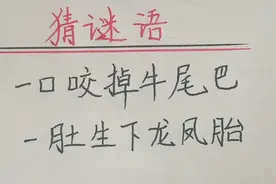 猜谜语
一口咬掉牛尾巴
一肚生下龙凤胎